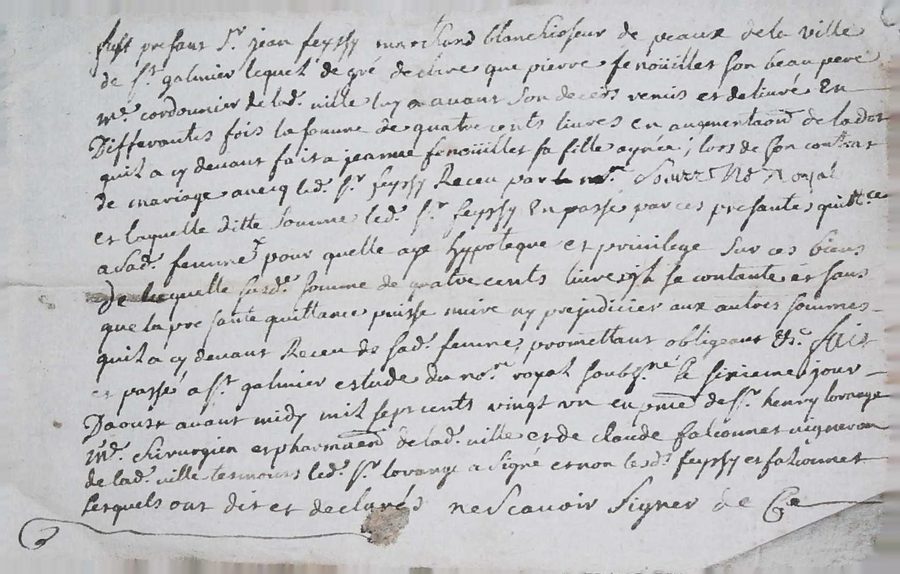 fust présant Sr. jean feyssy marchand blanchisseur de peaux de la ville
de St. galmier lequel de gré declare que pierre fenoüillet son beau pere
mre. cordonnier de lad. ville luy a avant son deceds remis et delivré En
Differantes fois la somme de quatre cents livres en augmentaon. de la dot
quil a cy devant fait a jeanne fenoüillet sa fille aynée, lors de son contrat
de mariage avecq led. Sr. feyssy Receu par le nore. Royal
et laquelle ditte somme led. Sr. feyssy En passe par ces presantes quittce
a sad. femme pour quelle aye hypoteque et privilege sur ces biens
de laquelle susd. somme de quatre cents livres il se contante et sans
que la presante quittance puisse nuire ny prejudicier aux autres sommes
quil a cy devant Receu de sad. femme, promettant obligeant &c. fait
et passé a St. galmier estude du nore. royal soubsné. Le sixieme jour
Daoust avant midy mil sept cents vingt un en pnce de Sr. henry lovange
Me. chirurgien et pharmaen de lad. ville et de claude falconnet vigneron
de lad. ville tesmoins led. Sr. lovange a signé et non lesd. feyssy et falconnet
lesquels ont dit et declarés ne scavoir signer de Ce